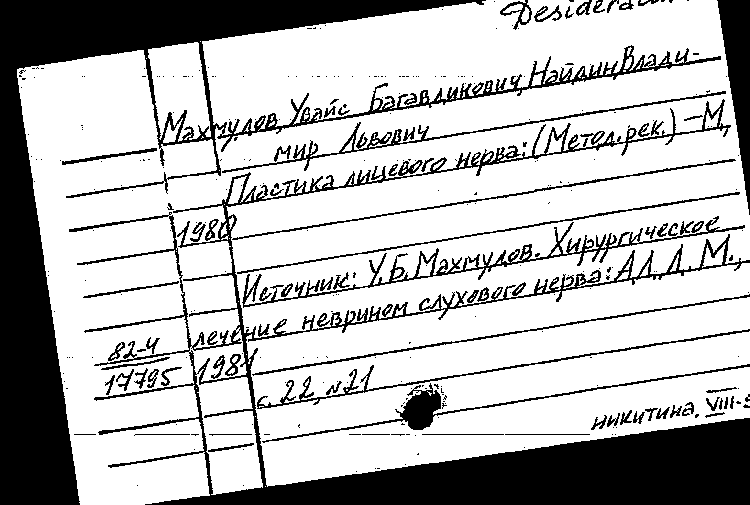 Desiderata
Махмудов, Увайс Багавдинович, Найдин, Влади-
мир Львович
Пластика лицевого нерва: (Метод. рек.) – М.,
1980
Источник: У.Б. Махмудов. Хирургическое
лечение неврином слухового нерва: АД. Д. М.,
1981
82-4
17795
с. 22, №21
никитина. VIII-8